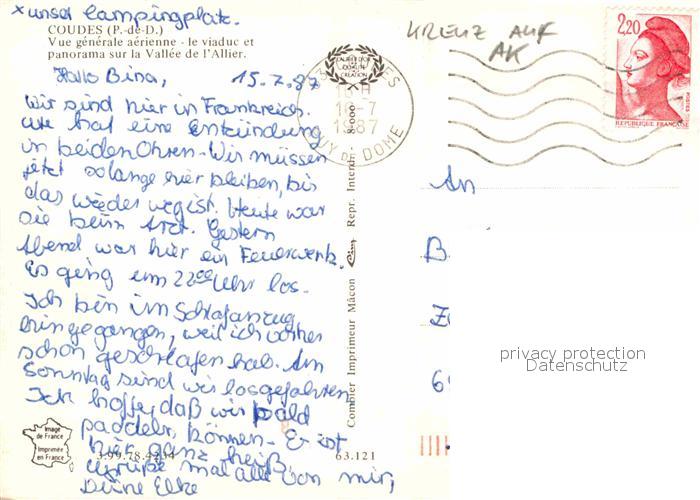 x unser Campingplatz.
COUDES (P.-de-D.)
Vue générale aérienne - le viaduc et
panorama sur la Vallée de l'Allier.
KREUZ AUF
AK
2,20
REPUBLIQUE FRANÇAISE
18-7
1987
PUY DE DOME
Hallo Bina, 15.7.87
Wir sind hier in Frankreich.
Ute hat eine Entzündung
in beiden Ohren. Wir müssen
jetzt solange hier bleiben, bis
das wieder weg ist. Heute war
sie beim Arzt. Gestern
Abend war hier ein Feuerwerk.
Es ging um 22 00 Uhr los.
Ich bin im Schlafanzug
hingegangen, weil ich vorher
schon geschlafen hab. Am
Sonntag sind wir losgefahren
Ich hoffe, daß wir bald
paddeln können. Es ist
hier ganz heiß.
Grüße mal alle von mir,
Deine Elke
An
B
Z
6
Combier Imprimeur Mâcon Cim Repr. Interdite
Image
de France
Imprimée
en France
3.99.78.4234
63.121
privacy protection
Datenschutz